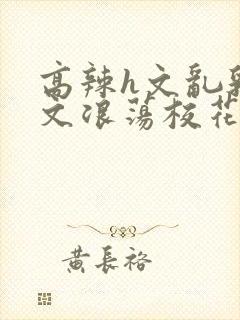 高辣h文乱乳
文浪荡校花
黄長裕